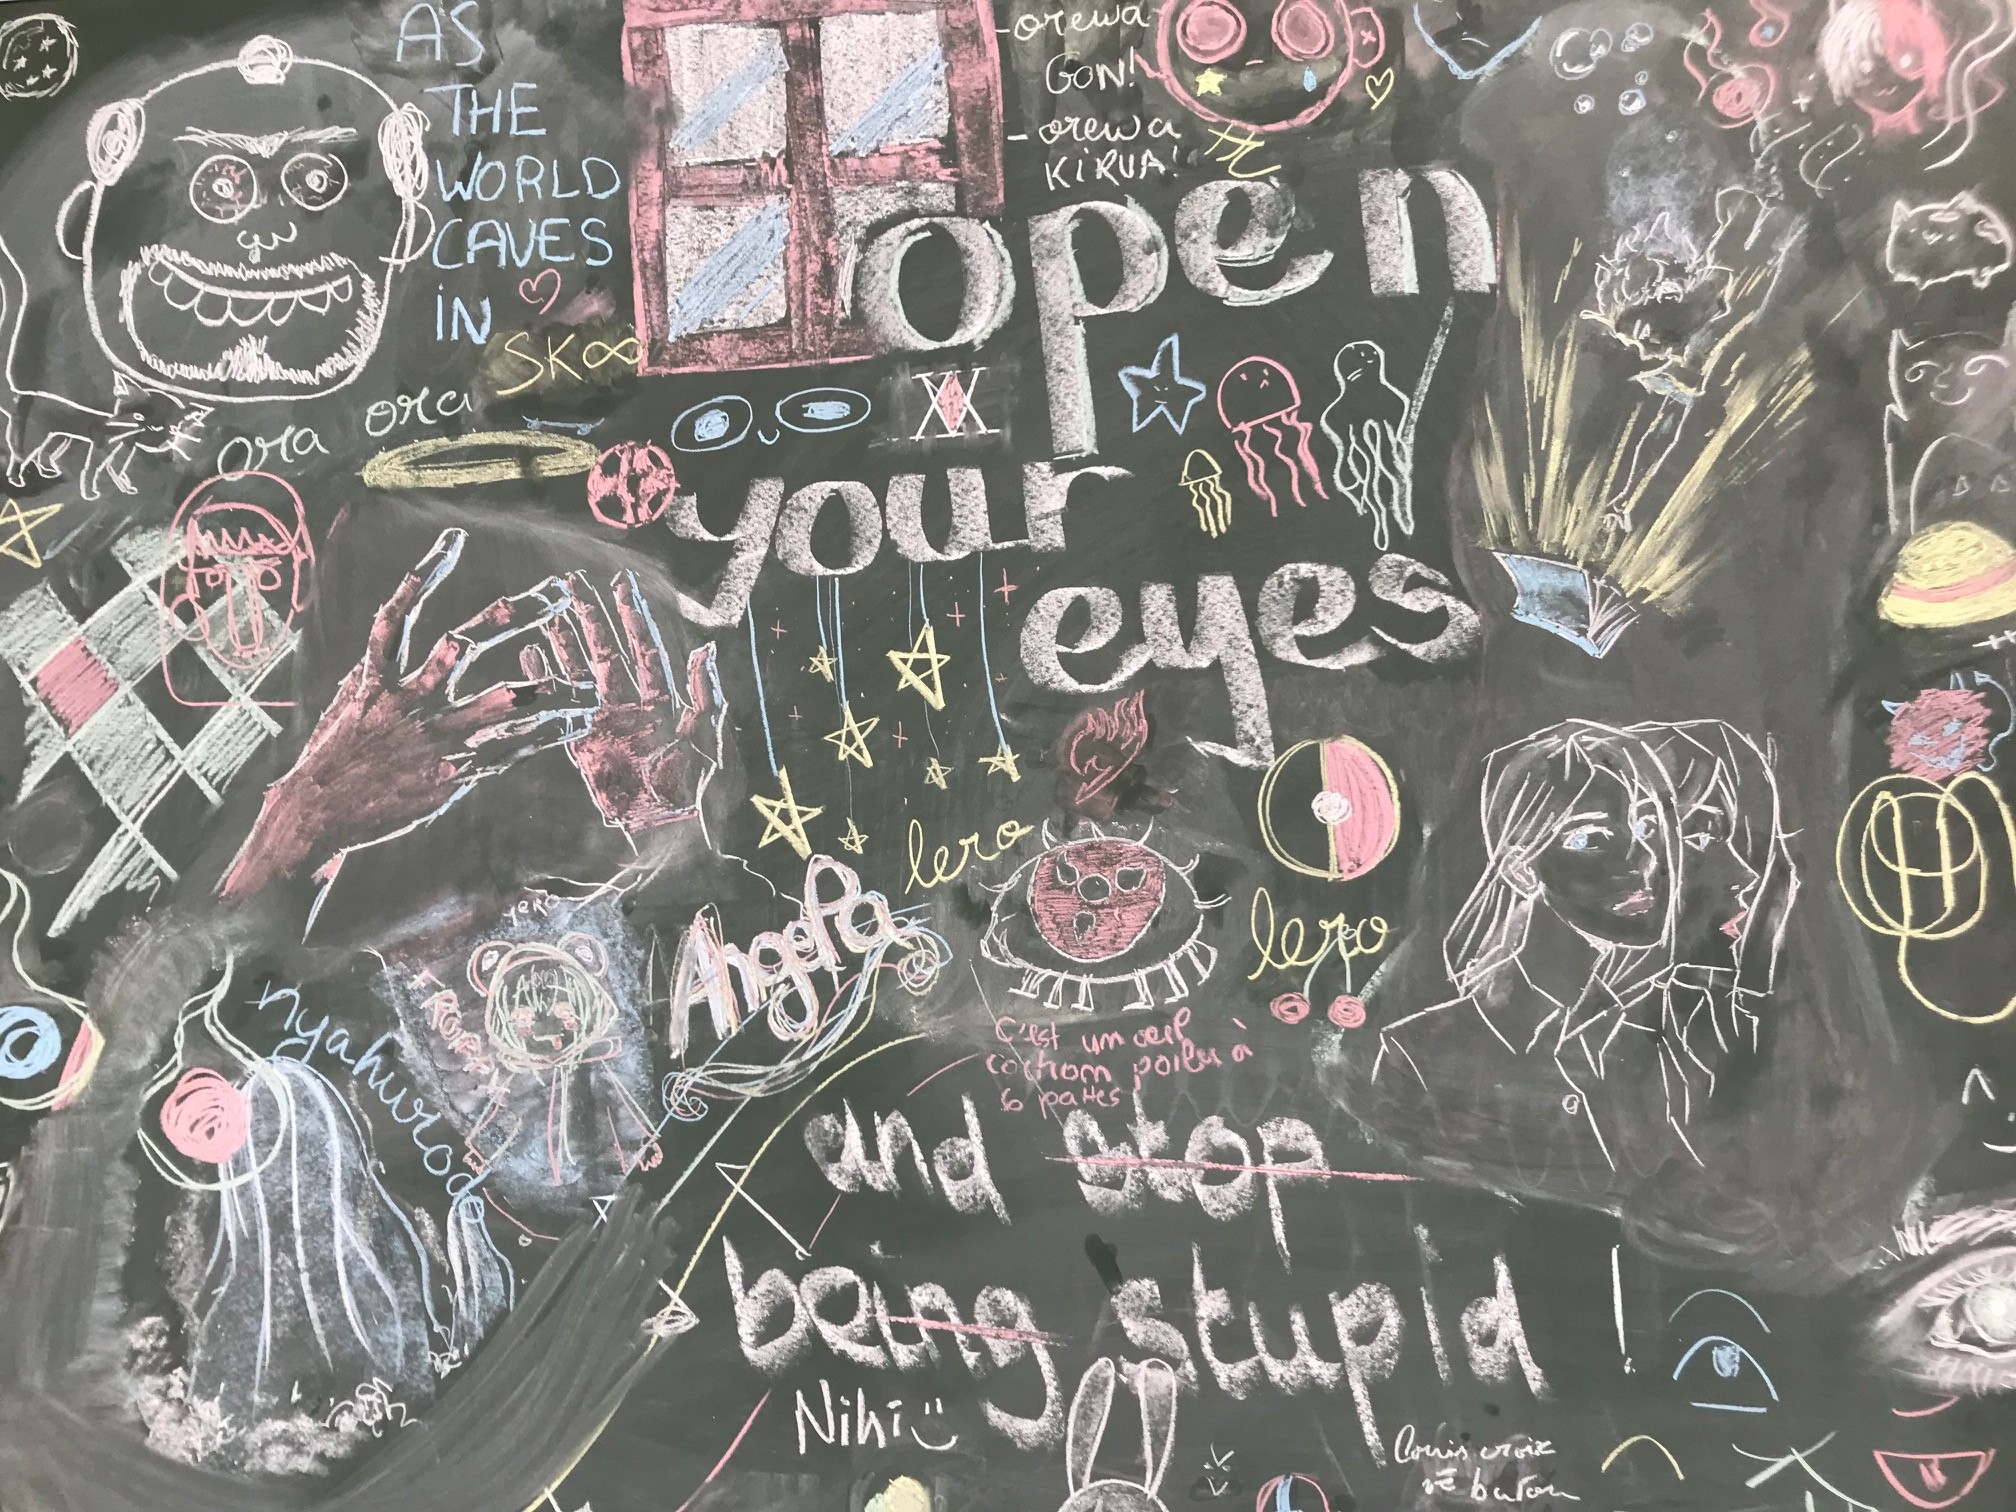 AS
THE
WORLD
CAVES
IN
SK∞
ora
ora
-orewa
GON!
-orewa
KIRUA!
open
your
eyes
lero
lero
nyahwroo
Angela
C'est un oeil
cochon poilu à
6 pattes
and stop
being stupid !
Nihi